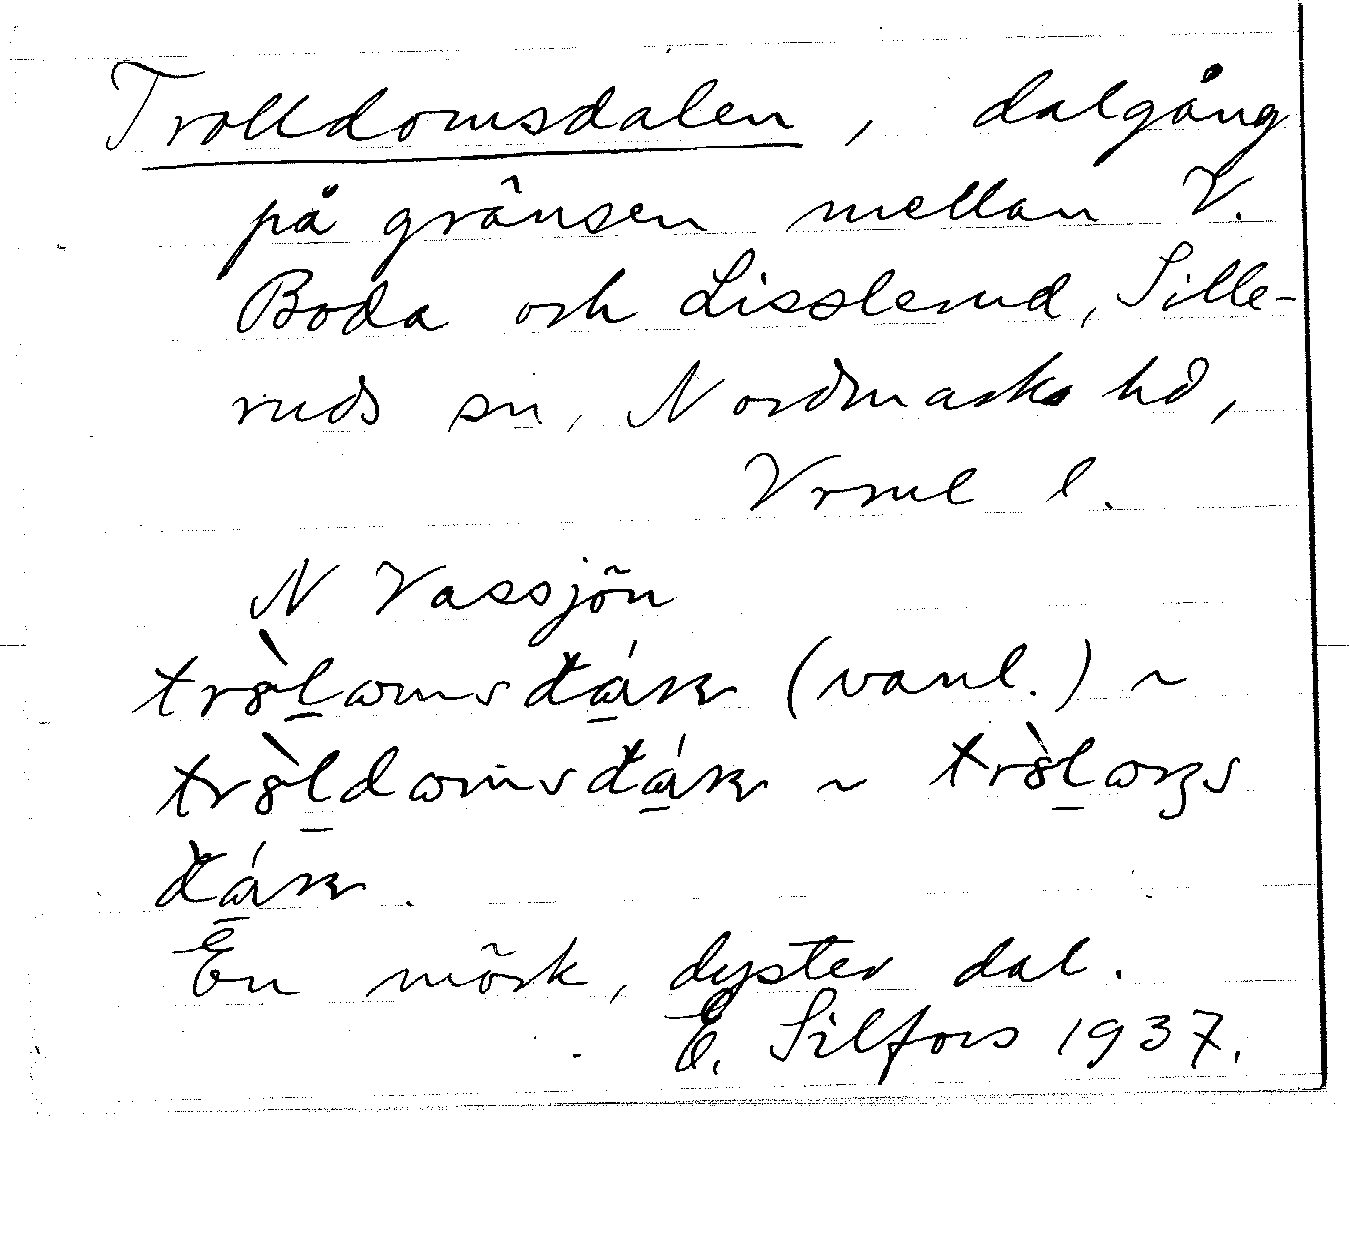 Trolldomsdalen, dalgång
på gränsen mellan V.
Boda och Lisslerud, Sille-
ruds sn, Nordmarks hd,
Vrml l.
N Vassjön
(vanl.) ~
~
En mörk, dyster dal.
E. Silfors 1937.